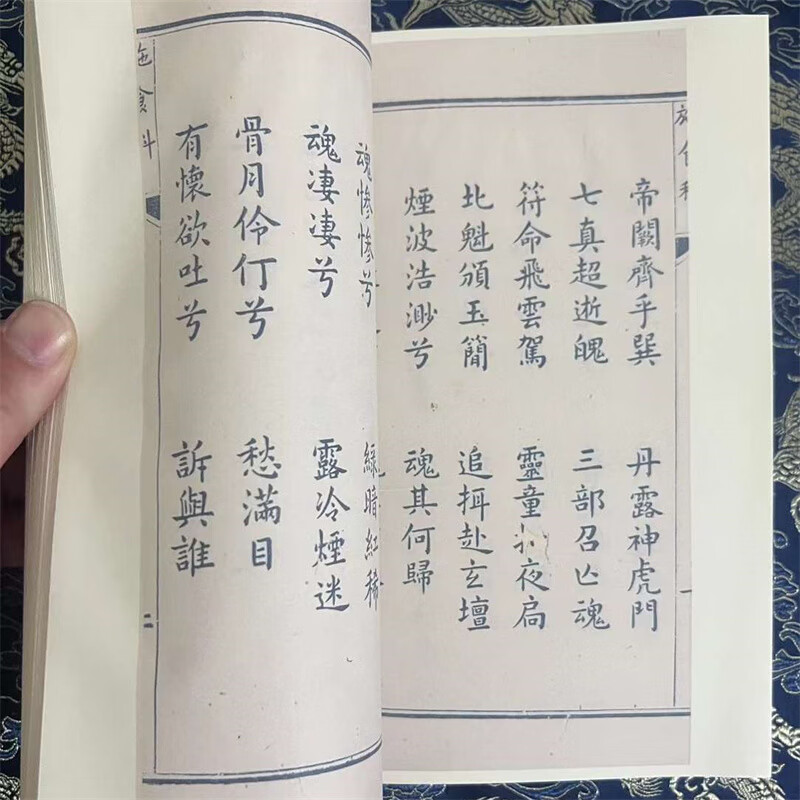 帝闕齊乎巽 丹露神虎門
七真超逝魄 三部召亾魂
符命飛雲駕 靈童 夜扃
北魁頒玉簡 追挕赴玄壇
煙波浩渺兮 魂其何歸
一
魂慘慘兮 綠暗紅稀
魂凄凄兮 露冷煙迷
骨月伶仃兮 愁滿目
有懷欲吐兮 訴與誰
食
二